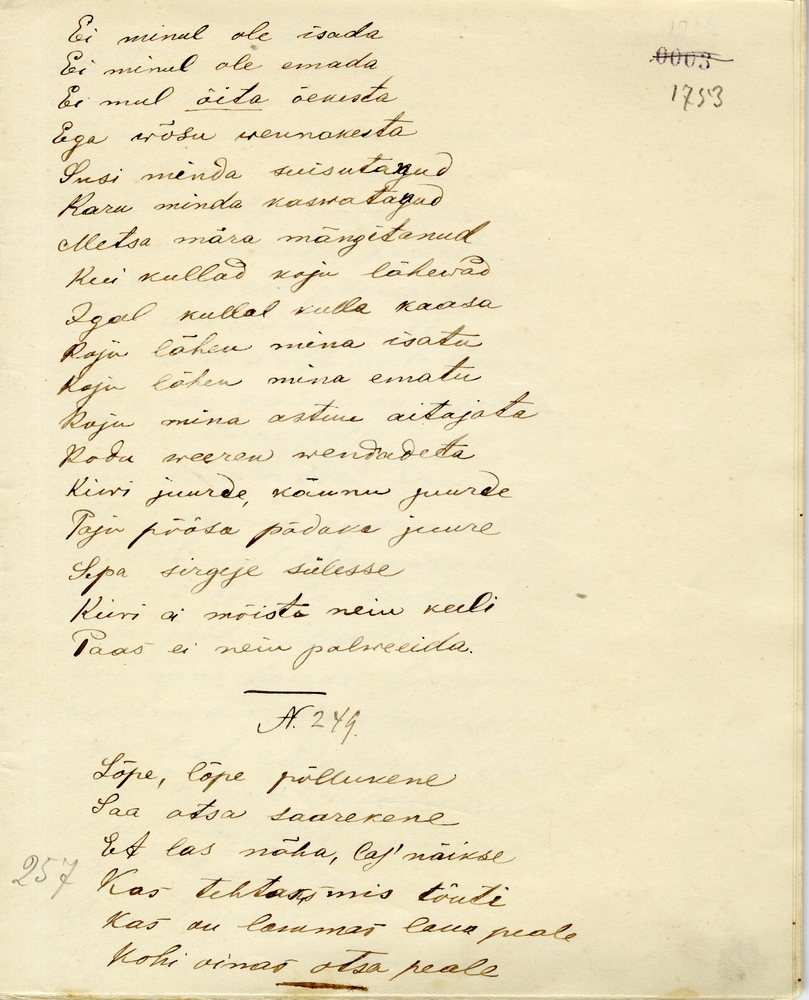 Ei minul ole isada
0003
Ei minul ole emada
1753
Ei mul õita õekesta
Ega wõsu wennakesta
Susi minda suisutanud
Karu minda kaswatanud
Metsa mära mängitanud
Kui kullad koju lähewad
Igal kullal kulla kaasa
Koju lähen mina isatu
Koju lähen mina ematu
Koju mina astun aitajata
Kodu weeren wendadeta
Kiwi juurde, kännu juurde
Paju põõsa padaka juure
Sepa sirgeje sülesse
Kiwi ei mõista neiu keeli
Paas ei neiu palweeida.
N. 249.
Lõpe, lõpe põllukene
Saa otsa saarekene
Et las näha, las' näikse
257
Kas tehtaks mis tõuti
Kas on lammas laua peale
Kohi oinas otsa peale